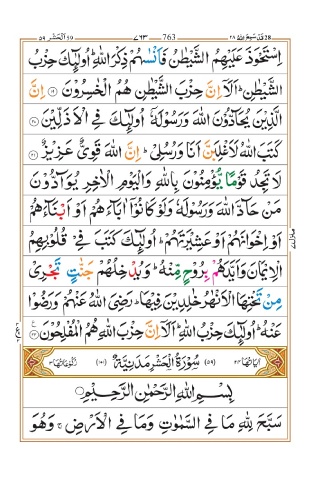 ٥٩ الحشر ٧٦٣ 763 قد سمع الله ٢٨ 28
اِسْتَحْوَذَ عَلَیْهِمُ الشَّیْطٰنُ فَاَنْسٰىهُمْ ذِكْرَ اللّٰهِؕ اُولٰٓىِٕكَ حِزْبُ
الشَّیْطٰنِؕ اَلَاۤ اِنَّ حِزْبَ الشَّیْطٰنِ هُمُ الْخٰسِرُوْنَ ۝۱۹ اِنَّ
الَّذِیْنَ یُحَآدُّوْنَ اللّٰهَ وَرَسُوْلَهٗۤ اُولٰٓىِٕكَ فِی الْاَذَلِّیْنَ ۝۲۰
كَتَبَ اللّٰهُ لَاَغْلِبَنَّ اَنَا وَرُسُلِیْؕ اِنَّ اللّٰهَ قَوِیٌّ عَزِیْزٌ ۝۲۱
لَا تَجِدُ قَوْمًا یُّؤْمِنُوْنَ بِاللّٰهِ وَالْیَوْمِ الْاٰخِرِ یُوَآدُّوْنَ
مَنْ حَآدَّ اللّٰهَ وَرَسُوْلَهٗ وَلَوْ كَانُوْۤا اٰبَآءَهُمْ اَوْ اَبْنَآءَهُمْ
اَوْ اِخْوَانَهُمْ اَوْ عَشِیْرَتَهُمْؕ اُولٰٓىِٕكَ كَتَبَ فِیْ قُلُوْبِهِمُ
الْاِیْمَانَ وَاَیَّدَهُمْ بِرُوْحٍ مِّنْهُؕ وَیُدْخِلُهُمْ جَنّٰتٍ تَجْرِیْ
مِنْ تَحْتِهَا الْاَنْهٰرُ خٰلِدِیْنَ فِیْهَاؕ رَضِیَ اللّٰهُ عَنْهُمْ وَرَضُوْا
عَنْهُؕ اُولٰٓىِٕكَ حِزْبُ اللّٰهِؕ اَلَاۤ اِنَّ حِزْبَ اللّٰهِ هُمُ الْمُفْلِحُوْنَ ۝۲۲
اٰیَاتُهَا ٢٤ (٥٩) سُوْرَةُ الْحَشْرِ مَدَنِیَّةٌ (١٠١) رُكُوْعَاتُهَا ٣
بِسْمِ اللّٰهِ الرَّحْمٰنِ الرَّحِیْمِ
سَبَّحَ لِلّٰهِ مَا فِی السَّمٰوٰتِ وَمَا فِی الْاَرْضِۚ وَهُوَ